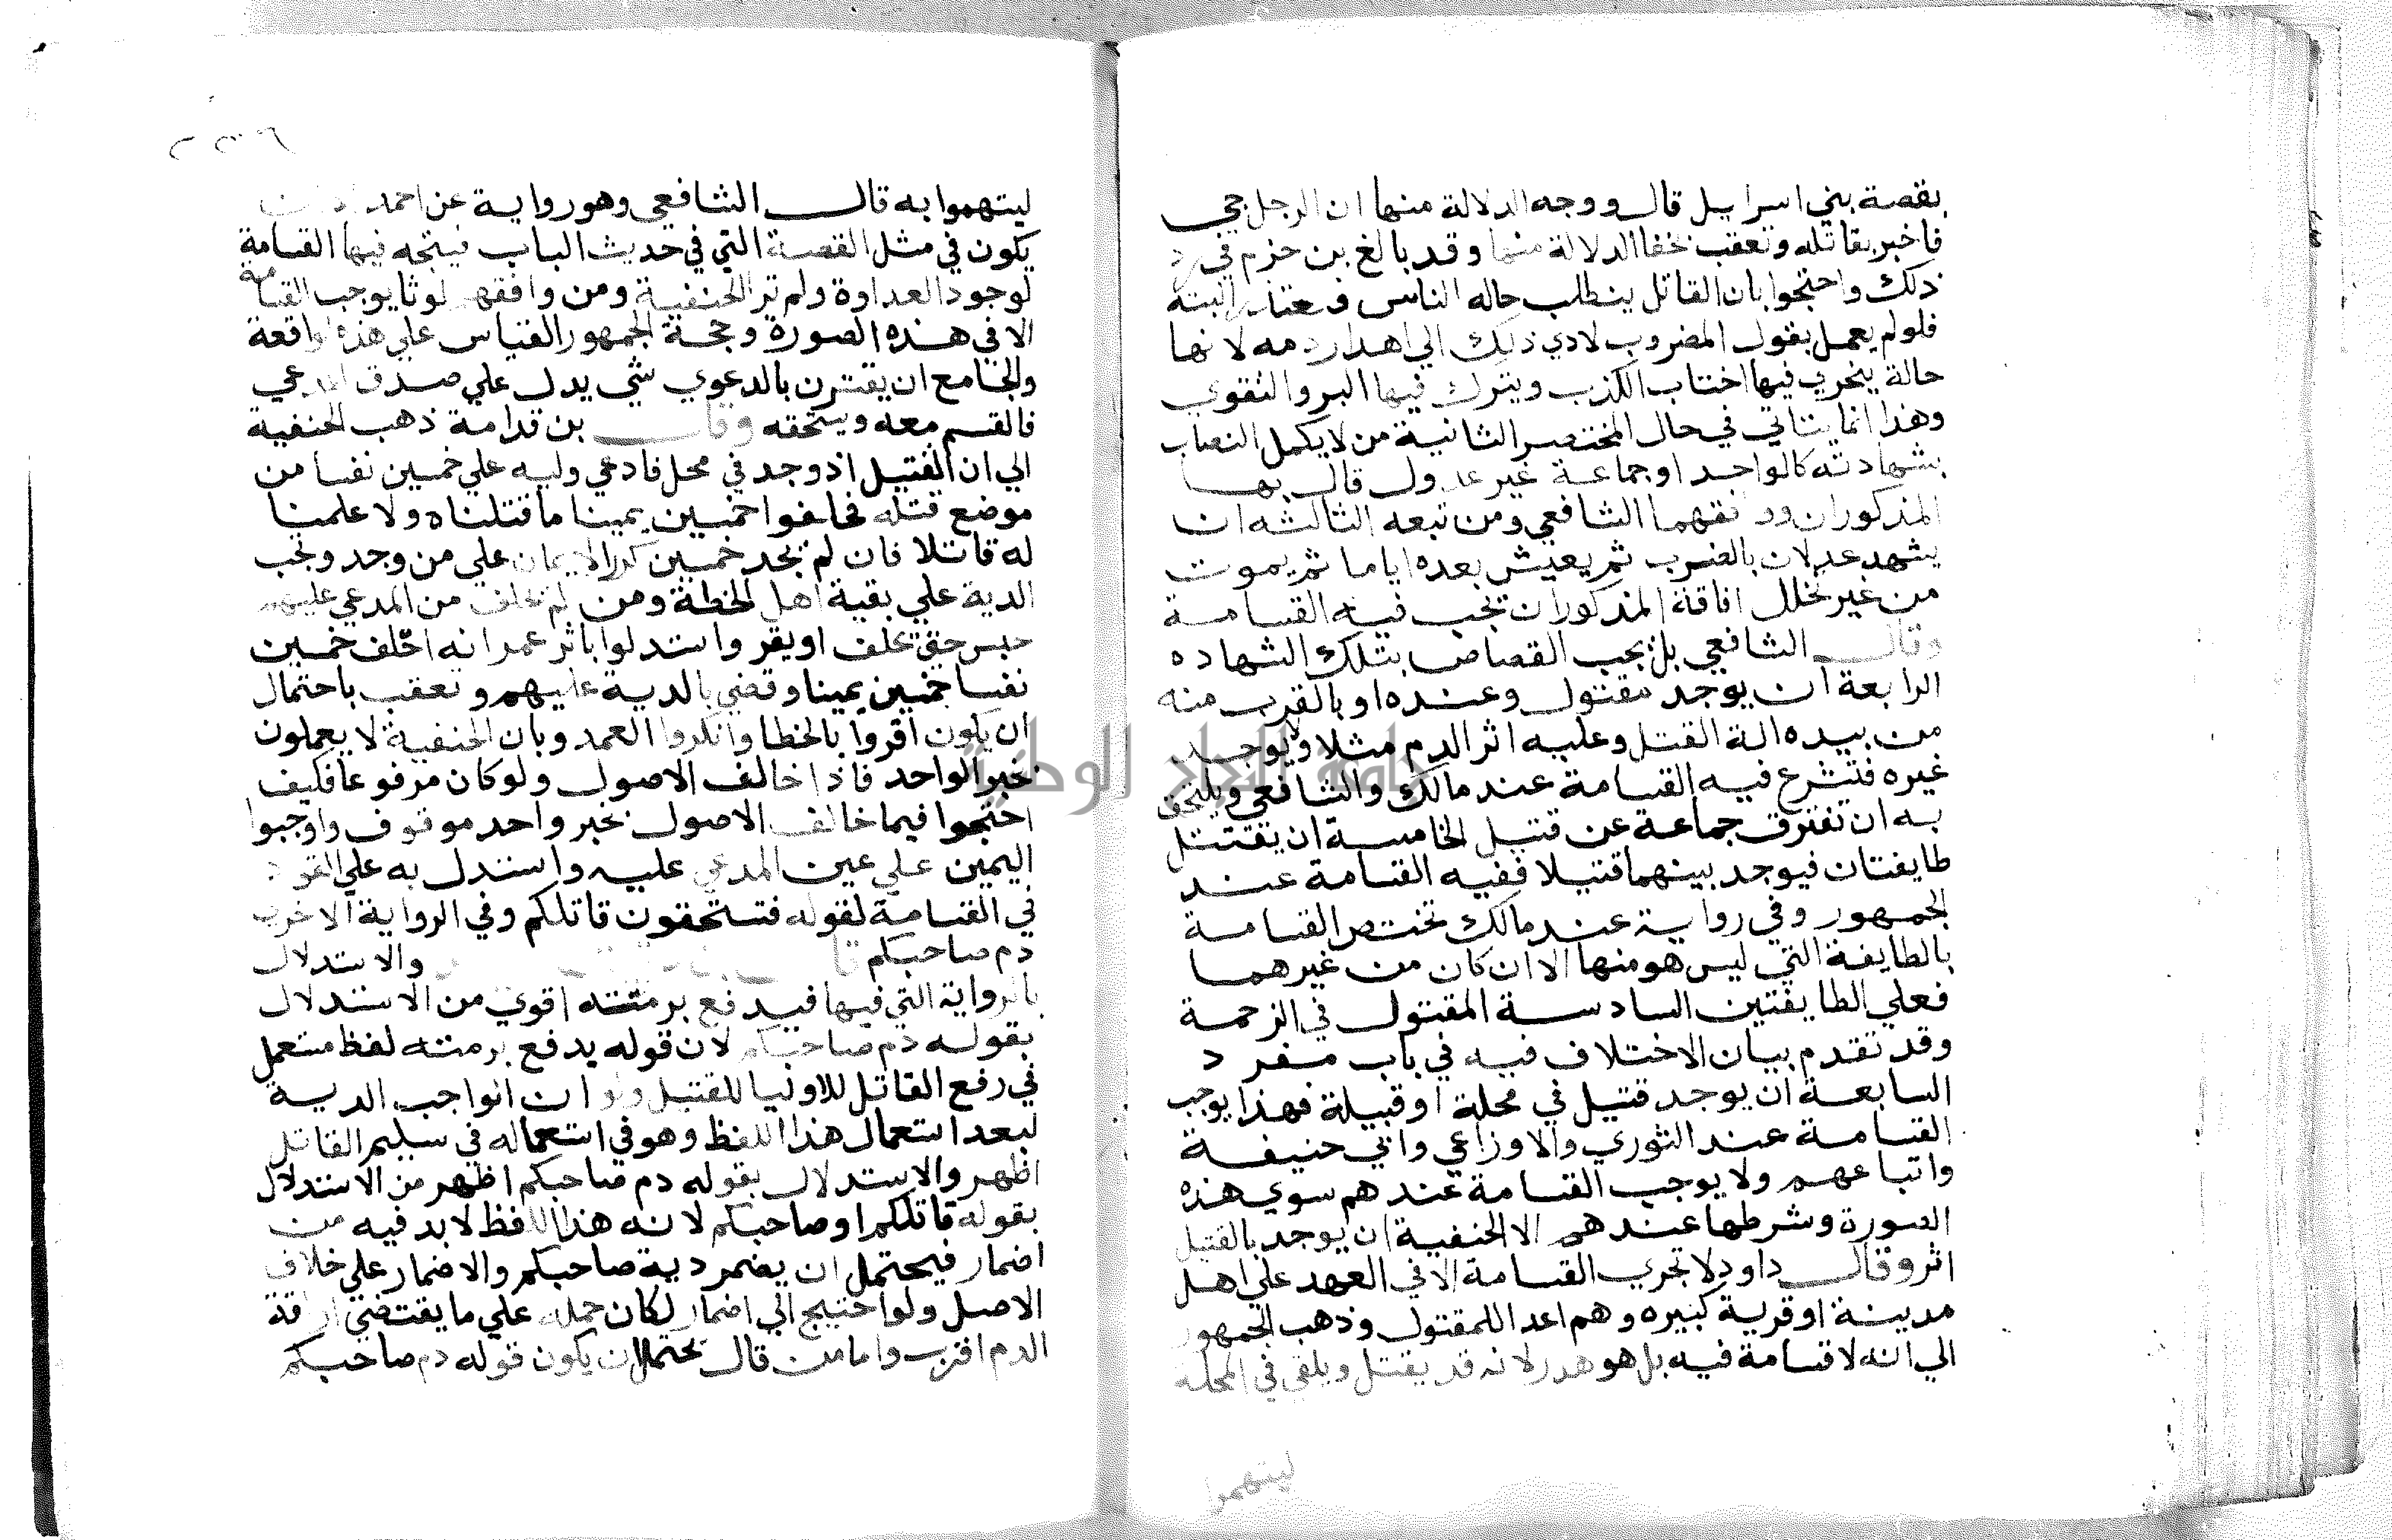 بقصة بني اسرايل قال ووجه الدلالة منها ان الرجل حي
فاخبر بقاتله وتعقب بخفا الدلالة منها وقد بالغ بن حزم في رد
ذلك واحتجوا بان القاتل يتطلب حاله الناس فتعتذر البينة
فلو لم يعمل بقول المضروب لادي ذلك الي اهدار دمه لانها
حالة يتحري فيها اجتناب الكذب ويترك فيها البر والتقوي
وهذا انما يتاتي في حال المحتضر الثانية من لا يكمل النصاب
بشهادته كالواحد او جماعة غير عدول قال بها
المذكوران ووافقهما الشافعي ومن تبعه الثالثه ان
يشهد عدلان بالضرب ثم يعيش بعده اياما ثم يموت
من غير تخلل افاقة المذكوران تجب فيه القسامة
وقال الشافعي بل يجب القصاص بتلك الشهاده
الرابعة ان يوجد مقتول وعنده او بالقرب منه
من بيده الة القتل وعليه اثر الدم مثلا ولا يوجد
غيره فتشرع فيه القسامة عند مالك والشافعي ويلتحق
به ان تفترق جماعة عن قتيل الخامسة ان يقتتل
طايفتان فيوجد بينهما قتيلا ففيه القسامة عند
الجمهور وفي رواية عند مالك تختص القسامة
بالطايفة التي ليس هو منها الا ان كان من غيرهما
فعلي الطايفتين السادسة المقتول في الزحمة
وقد تقدم بيان الاختلاف فيه في باب مفرد
السابعة ان يوجد قتيل في محلة او قبيلة فهذا يوجب
القسامة عند الثوري والاوزاعي وابي حنيفة
واتباعهم ولا يوجب القسامة عندهم سوي هذه
الصورة وشرطها عندهم الا الحنفية ان يوجد بالقتيل
اثر وقال داود لا تجري القسامة الا في العهد علي اهل
مدينة او قرية كبيره وهم اعدا للمقتول وذهب الجمهور
الي انه لا قسامة فيه بل هو هدر لانه قد يقتل ويلقي في المحله
ليتهموا
ليتهموا به قال الشافعي وهو رواية عن احمد
يكون في مثل القصة التي في حديث الباب فيتجه فيها القسامة
لوجود العداوة ولم تر الحنفية ومن وافقهم لوثا يوجب القسامة
الا في هذه الصورة وحجة الجمهور القياس علي هذه الواقعة
والجامع ان يقترن بالدعوي شي يدل علي صدق المدعي
فالقسم معه ويستحقه وقال بن قدامة ذهب الحنفية
الي ان القتيل اذ وجد في محل فادعي وليه علي خمسين نفسا من
موضع قتله فحلفوا خمسين يمينا ما قتلناه ولا علمنا
له قاتلا فان لم يجد خمسين كرر الايمان علي من وجد وتجب
الدية علي بقية اهل الخطة ومن لم يحلف من المدعي عليهم
حبس حتي يحلف او يقر واستدلوا باثر عمر انه احلف خمسين
نفسا خمسين يمينا وقضي بالدية عليهم وتعقب باحتمال
ان يكون اقروا بالخطا وانكروا العمد وبان الحنفية لا يعملون
بخبر الواحد فاذا خالف الاصول ولو كان مرفوعا فكيف
احتجوا فيما خالف الاصول بخبر واحد موقوف واوجبوا
اليمين علي عين المدعي عليه واستدل به علي القود
في القسامة لقوله فتستحقون قاتلكم وفي الرواية الاخري
دم صاحبكم والاستدلال
بالرواية التي فيها فيدفع برمته اقوي من الاستدلال
بقوله دم صاحبكم لان قوله يدفع برمته لفظ مستعمل
في رفع القاتل للاوليا للقتيل ولو ان الواجب الدية
لبعد استعمال هذا اللفظ وهو في استعماله في سليم القاتل
اظهر والاستدلال بقوله دم صاحبكم اظهر من الاستدلال
بقوله قاتلكم او صاحبكم لانه هذا اللفظ لا بد فيه من
اضمار فيحتمل ان يضمر دية صاحبكم والاضمار علي خلاف
الاصل ولو احتيج الي اضمار لكان حمله علي ما يقتضي اراقة
الدم اقرب واما من قال يحتمل ان يكون قوله دم صاحبكم
جامعة النجاح الوطنية